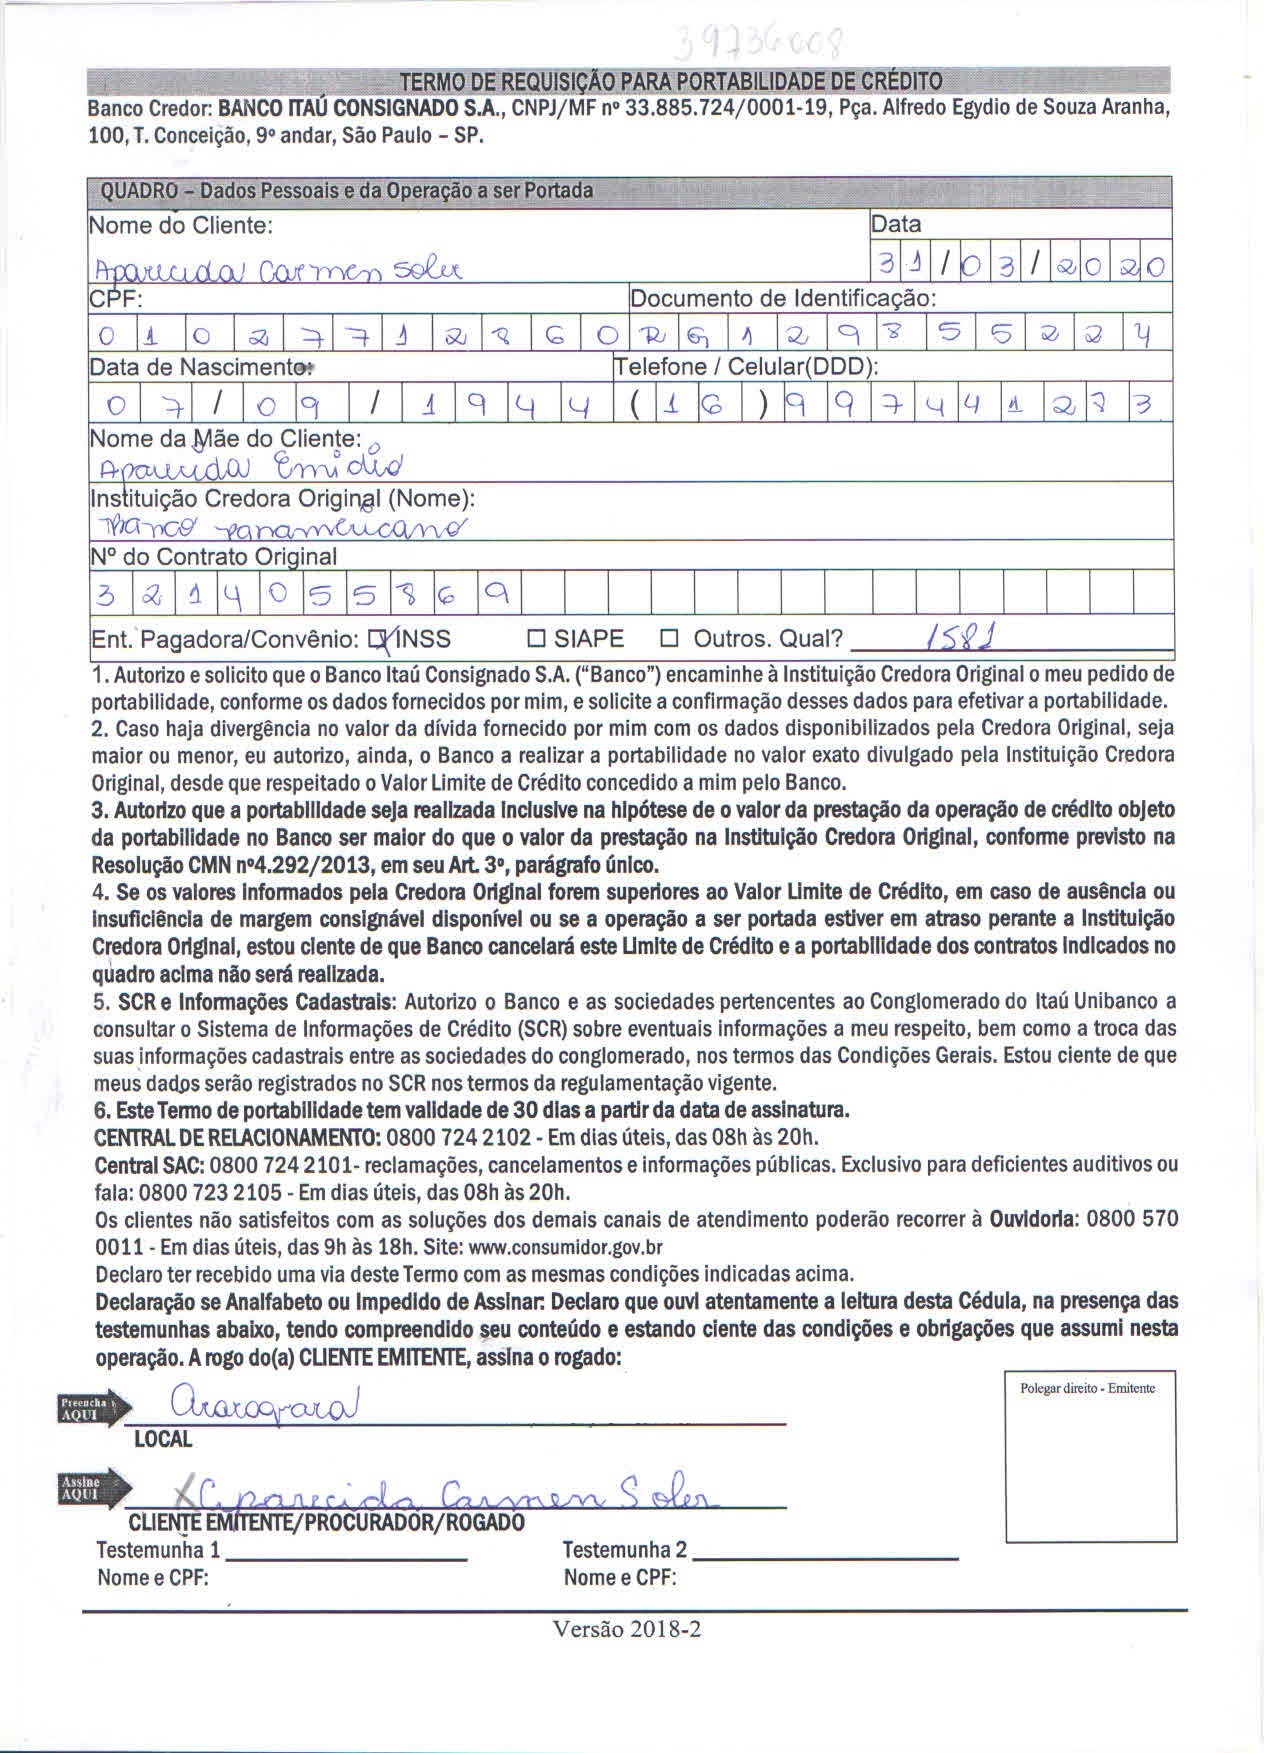 39736008
TERMO DE REQUISIÇÃO PARA PORTABILIDADE DE CRÉDITO
Banco Credor: BANCO ITAÚ CONSIGNADO S.A., CNPJ/MF nº 33.885.724/0001-19, Pça. Alfredo Egydio de Souza Aranha,
100, T. Conceição, 9º andar, São Paulo – SP.
QUADRO – Dados Pessoais e da Operação a ser Portada
Nome do Cliente: Data
Aparecida Carmen Soler 31/03/2020
CPF: Documento de Identificação:
01027712860 RG129855224
Data de Nascimento: Telefone / Celular(DDD):
07/09/1944 (16)997441273
Nome da Mãe do Cliente:
Aparecida Emidio
Instituição Credora Original (Nome):
Banco panamericano
Nº do Contrato Original
3214055869
Ent. Pagadora/Convênio: ☑ INSS ☐ SIAPE ☐ Outros. Qual? 1581
1. Autorizo e solicito que o Banco Itaú Consignado S.A. (“Banco”) encaminhe à Instituição Credora Original o meu pedido de
portabilidade, conforme os dados fornecidos por mim, e solicite a confirmação desses dados para efetivar a portabilidade.
2. Caso haja divergência no valor da dívida fornecido por mim com os dados disponibilizados pela Credora Original, seja
maior ou menor, eu autorizo, ainda, o Banco a realizar a portabilidade no valor exato divulgado pela Instituição Credora
Original, desde que respeitado o Valor Limite de Crédito concedido a mim pelo Banco.
3. Autorizo que a portabilidade seja realizada inclusive na hipótese de o valor da prestação da operação de crédito objeto
da portabilidade no Banco ser maior do que o valor da prestação na Instituição Credora Original, conforme previsto na
Resolução CMN nº4.292/2013, em seu Art. 3º, parágrafo único.
4. Se os valores informados pela Credora Original forem superiores ao Valor Limite de Crédito, em caso de ausência ou
insuficiência de margem consignável disponível ou se a operação a ser portada estiver em atraso perante a Instituição
Credora Original, estou ciente de que Banco cancelará este Limite de Crédito e a portabilidade dos contratos indicados no
quadro acima não será realizada.
5. SCR e Informações Cadastrais: Autorizo o Banco e as sociedades pertencentes ao Conglomerado do Itaú Unibanco a
consultar o Sistema de Informações de Crédito (SCR) sobre eventuais informações a meu respeito, bem como a troca das
suas informações cadastrais entre as sociedades do conglomerado, nos termos das Condições Gerais. Estou ciente de que
meus dados serão registrados no SCR nos termos da regulamentação vigente.
6. Este Termo de portabilidade tem validade de 30 dias a partir da data de assinatura.
CENTRAL DE RELACIONAMENTO: 0800 724 2102 - Em dias úteis, das 08h às 20h.
Central SAC: 0800 724 2101- reclamações, cancelamentos e informações públicas. Exclusivo para deficientes auditivos ou
fala: 0800 723 2105 - Em dias úteis, das 08h às 20h.
Os clientes não satisfeitos com as soluções dos demais canais de atendimento poderão recorrer à Ouvidoria: 0800 570
0011 - Em dias úteis, das 9h às 18h. Site: www.consumidor.gov.br
Declaro ter recebido uma via deste Termo com as mesmas condições indicadas acima.
Declaração se Analfabeto ou Impedido de Assinar: Declaro que ouvi atentamente a leitura desta Cédula, na presença das
testemunhas abaixo, tendo compreendido seu conteúdo e estando ciente das condições e obrigações que assumi nesta
operação. A rogo do(a) CLIENTE EMITENTE, assina o rogado:
Polegar direito - Emitente
Preencha AQUI Araraquara
LOCAL
Assine AQUI X Aparecida Carmen Soler
CLIENTE EMITENTE/PROCURADOR/ROGADO
Testemunha 1 Testemunha 2
Nome e CPF: Nome e CPF:
Versão 2018-2